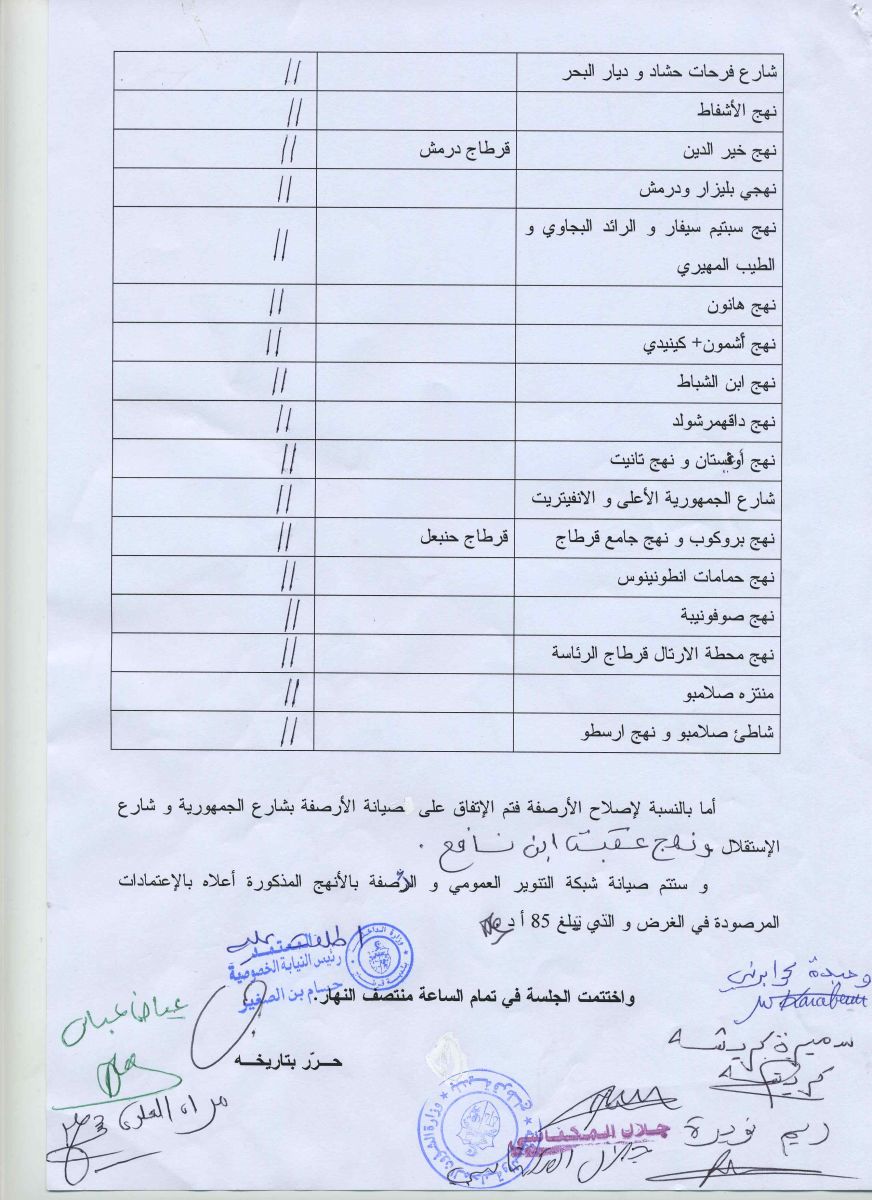 شارع فرحات حشاد و ديار البحر //
نهج الأشفاط //
نهج خير الدين قرطاج درمش //
نهجي بليزار ودرمش //
نهج سبتيم سيفار و الرائد البجاوي و
الطيب المهيري //
نهج هانون //
نهج أشمون+ كينيدي //
نهج ابن الشباط //
نهج داقهمرشولد //
نهج أوغستان و نهج تانيت //
شارع الجمهورية الأعلى و الانفيتريت //
نهج بروكوب و نهج جامع قرطاج قرطاج حنبعل //
نهج حمامات انطونينوس //
نهج صوفونيبة //
نهج محطة الارتال قرطاج الرئاسة //
منتزه صلامبو //
شاطئ صلامبو و نهج ارسطو //
أما بالنسبة لإصلاح الأرصفة فتم الإتفاق على صيانة الأرصفة بشارع الجمهورية و شارع
الإستقلال ونهج عقبة ابن نافع .
و ستتم صيانة شبكة التنوير العمومي و الأرصفة بالأنهج المذكورة أعلاه بالإعتمادات
المرصودة في الغرض و الذي تبلغ 85 أ د
اطلعت عليه
المعتمد
رئيس النيابة الخصوصية
حسام بن الصغير
واختتمت الجلسة في تمام الساعة منتصف النهار.
حـــرّر بتاريخــه
وحيدة
سميرة كريشه
كريشه
ريم نويرة
جلال المكناسي
جلال
مراد